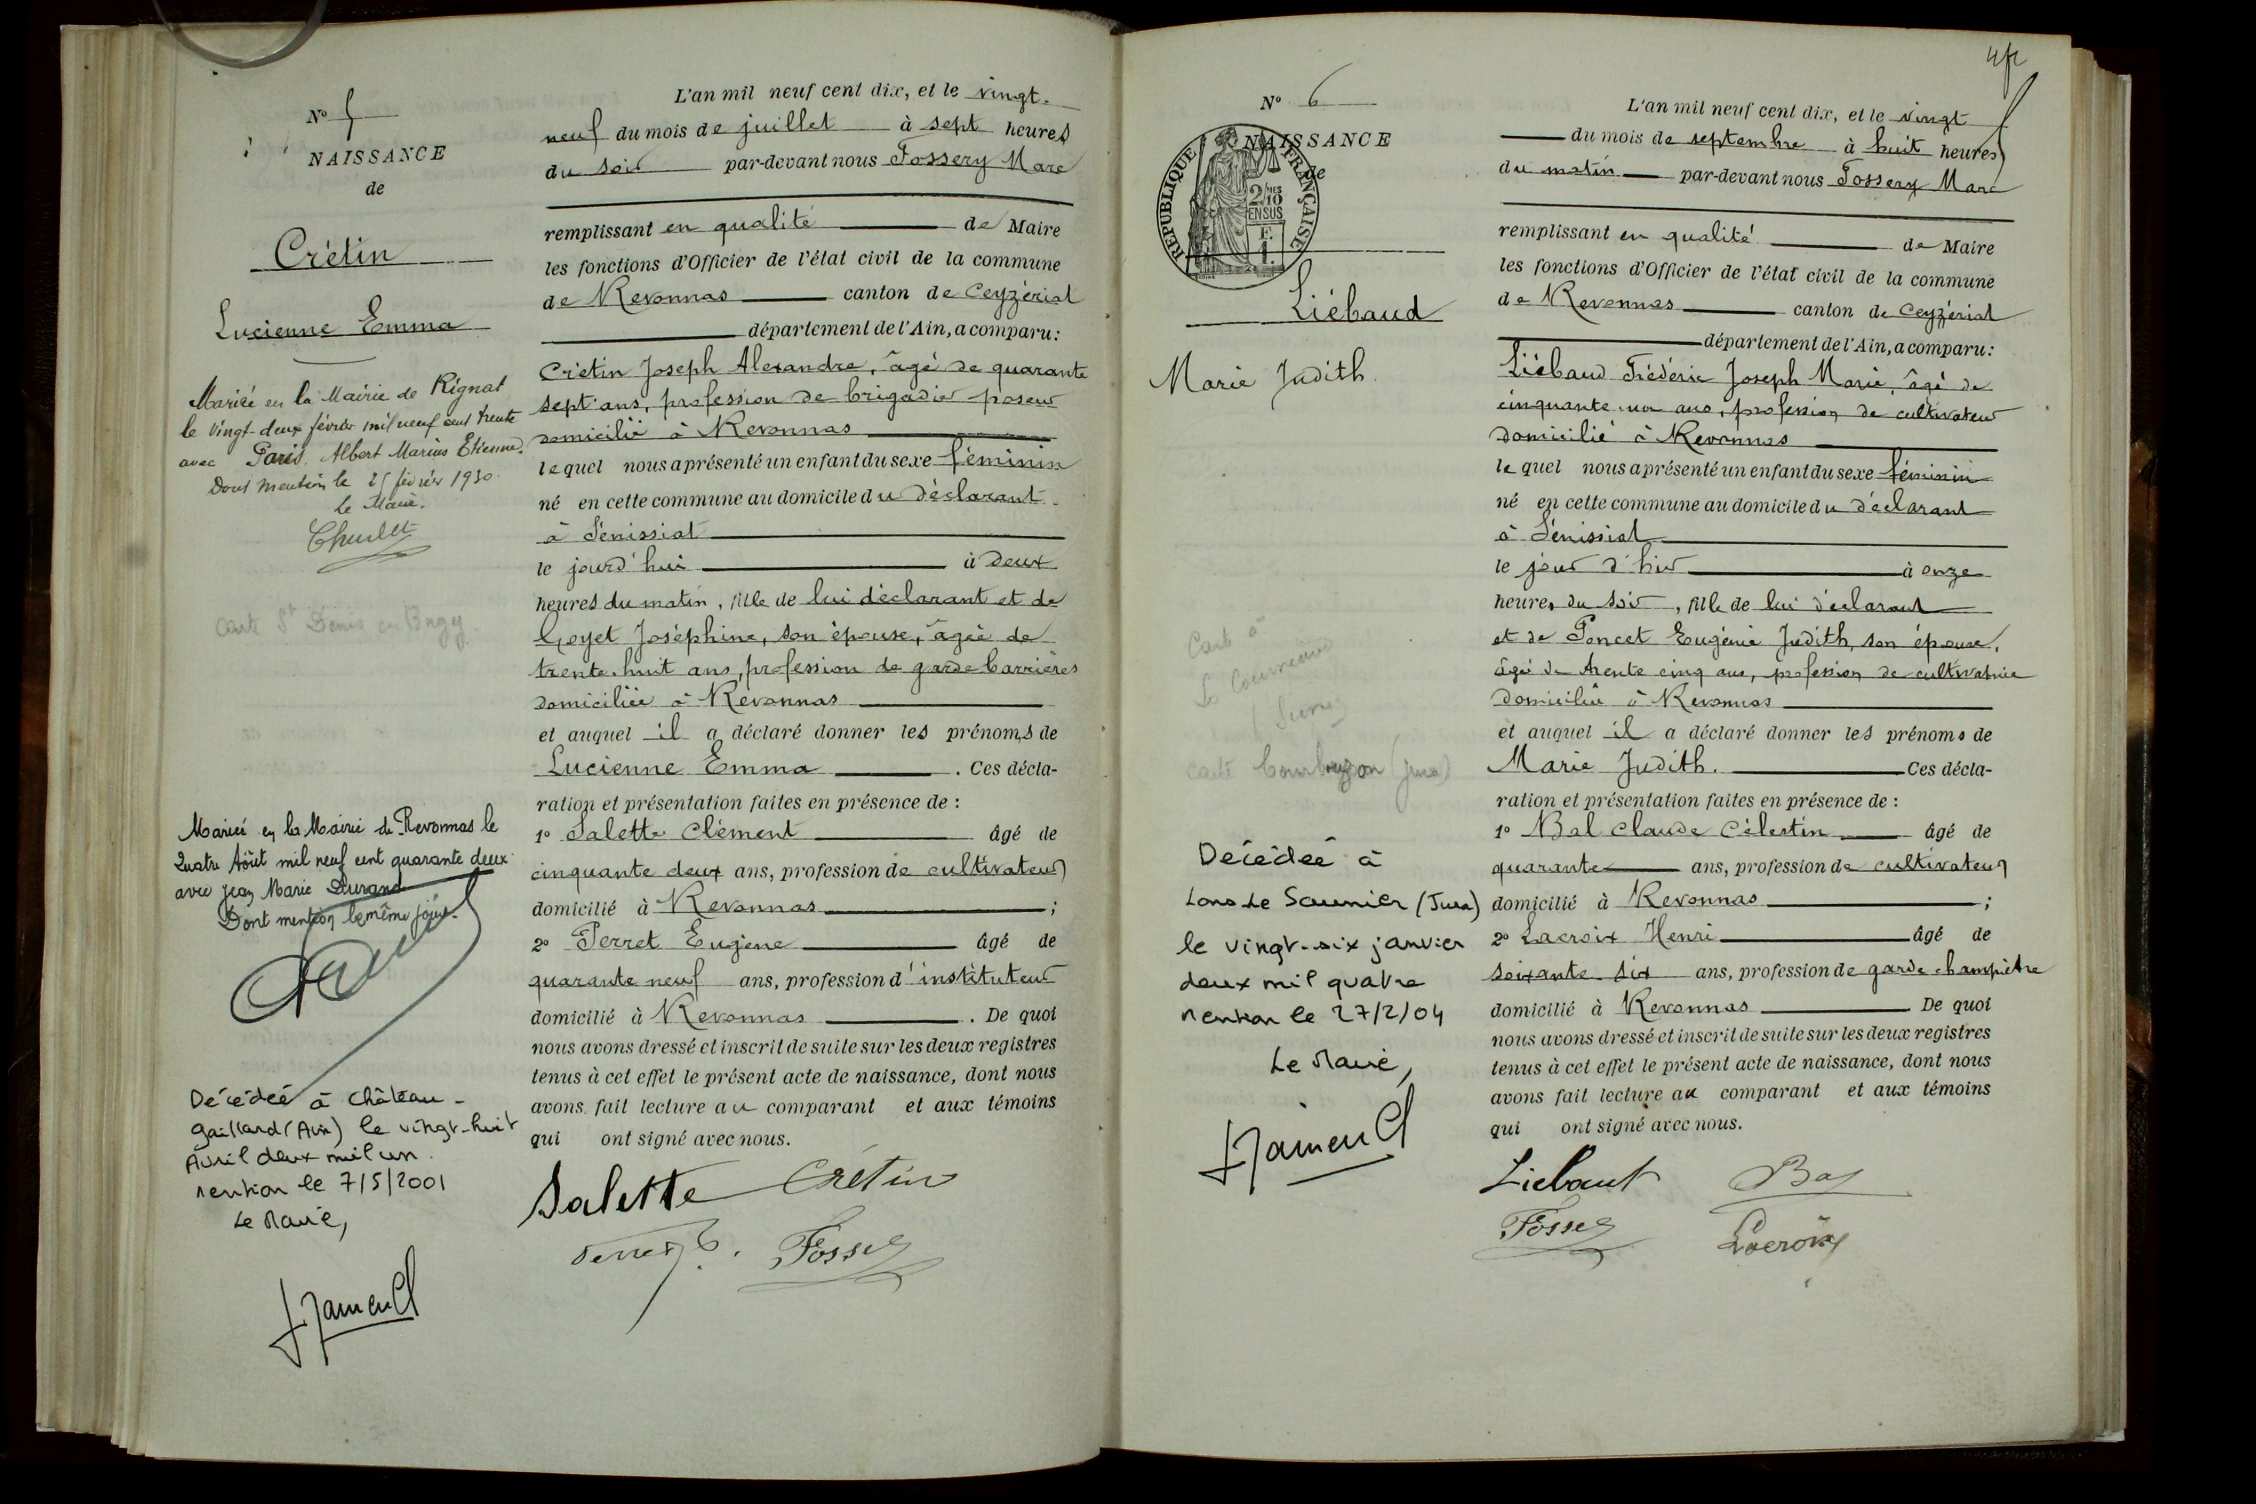 N° 5
NAISSANCE
de
Crétin
Lucienne Emma
Mariée en la Mairie de Rignat
le vingt-deux février mil neuf cent trente
avec Paris Albert Marius Etienne.
Dont mention le 25 février 1930.
Le Maire.
Carte St Denis en Bugey
Mariée en la Mairie de Revonnas le
Quatre Août mil neuf cent quarante deux
avec Jean Marie Durand
Dont mention le même jour.
Décédée à Château-
Gaillard (Ain) le vingt-huit
Avril deux mil un.
mention le 7/5/2001
Le Maire,
L'an mil neuf cent dix, et le vingt-
neuf du mois de juillet à sept heures
du soir par-devant nous Fossery Marc
remplissant en qualité de Maire
les fonctions d'Officier de l'état civil de la commune
de Revonnas canton de Ceyzériat
département de l'Ain, a comparu:
Crétin Joseph Alexandre, âgé de quarante
sept ans, profession de brigadier poseur
domicilié à Revonnas
lequel nous a présenté un enfant du sexe féminin
né en cette commune au domicile du déclarant
à Sénissiat
le jourd'hui à deux
heures du matin, fille de lui déclarant et de
Goyet Joséphine, son épouse, âgée de
trente-huit ans, profession de garde barrières
domiciliée à Revonnas
et auquel il a déclaré donner les prénoms de
Lucienne Emma. Ces décla-
ration et présentation faites en présence de :
1° Salette Clément âgé de
cinquante deux ans, profession de cultivateur
domicilié à Revonnas ;
2° Perret Eugène âgé de
quarante neuf ans, profession d'instituteur
domicilié à Revonnas. De quoi
nous avons dressé et inscrit de suite sur les deux registres
tenus à cet effet le présent acte de naissance, dont nous
avons fait lecture au comparant et aux témoins
qui ont signé avec nous.
Salette Crétin
Perret Fossery
4
N° 6
NAISSANCE
de
RÉPUBLIQUE FRANÇAISE
2/10 EN SUS
Liébaud
Marie Judith
Carte à
Carte Courbouzon (Jura)
Décédée à
Lons Le Saunier (Jura)
le vingt-six janvier
deux mil quatre
mention le 27/2/04
Le Maire,
L'an mil neuf cent dix, et le vingt
du mois de septembre à huit heures
du matin par-devant nous Fossery Marc
remplissant en qualité de Maire
les fonctions d'Officier de l'état civil de la commune
de Revonnas canton de Ceyzériat
département de l'Ain, a comparu:
Liébaud Frédéric Joseph Marie, âgé de
cinquante-un ans, profession de cultivateur
domicilié à Revonnas
lequel nous a présenté un enfant du sexe féminin
né en cette commune au domicile du déclarant
à Sénissiat
le jour d'hier à onze
heures du soir, fille de lui déclarant
et de Poncet Eugénie Judith, son épouse,
âgée de trente cinq ans, profession de cultivatrice
domiciliée à Revonnas
et auquel il a déclaré donner les prénoms de
Marie Judith. Ces décla-
ration et présentation faites en présence de :
1° Bal Claude Célestin âgé de
quarante ans, profession de cultivateur
domicilié à Revonnas ;
2° Lacroix Henri âgé de
soixante-six ans, profession de garde-champêtre
domicilié à Revonnas De quoi
nous avons dressé et inscrit de suite sur les deux registres
tenus à cet effet le présent acte de naissance, dont nous
avons fait lecture au comparant et aux témoins
qui ont signé avec nous.
Liebaut Bal
Fossery Lacroix